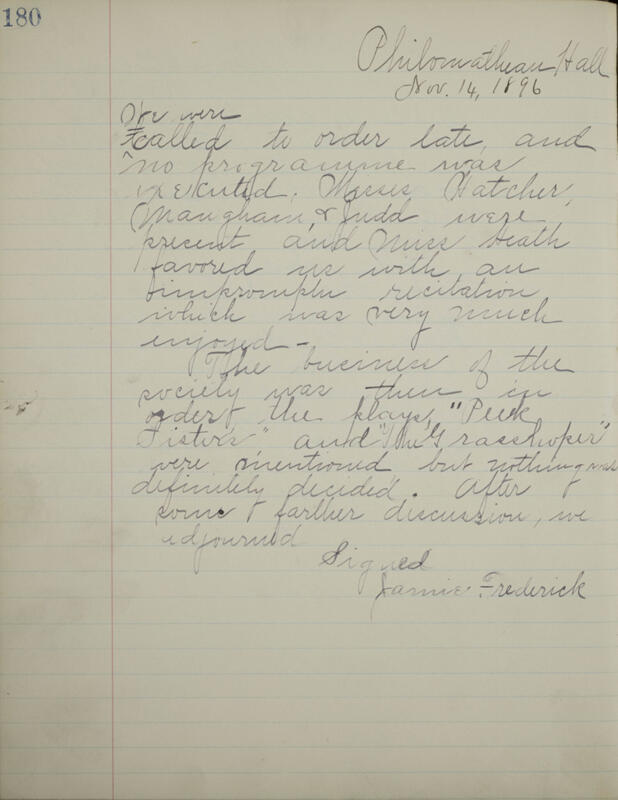 180
Philomathean Hall
Nov. 14, 1896
We were
called to order late, and
no programme was
executed. Misses Hatcher,
Maugham, & Judd were
present and Miss Heath
favored us with an
impromptu recitation
which was very much
enjoyed –
The business of the
society was then in
order & the plays, "Peek
Sisters" and "The Grasshoper"
were mentioned but nothing was
definitely decided. After
some farther discussion, we
adjourned
Signed
Jamie Frederick